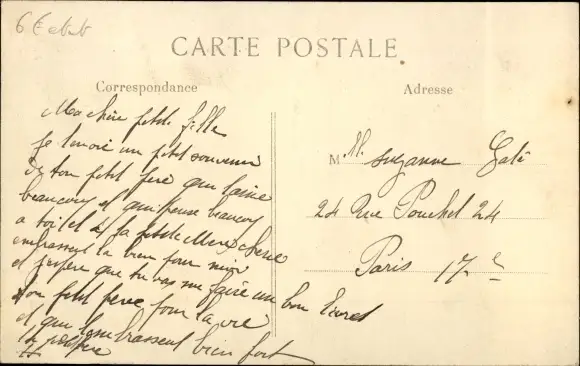 CARTE POSTALE
Correspondance
Adresse
Ma chère petite fille
Je t'envoie un petit souvenir
de ton petit père qui t'aime
beaucoup et qui pense beaucoup
a toi et a ta petite Mère cherie
embrassent la bien pour moi
et j'espère que tu vas me faire un bon
ton petit père pour la vie
et qui t'embrassent bien fort
M lle Suzanne
24 Rue Pouchet 24
Paris 17 e